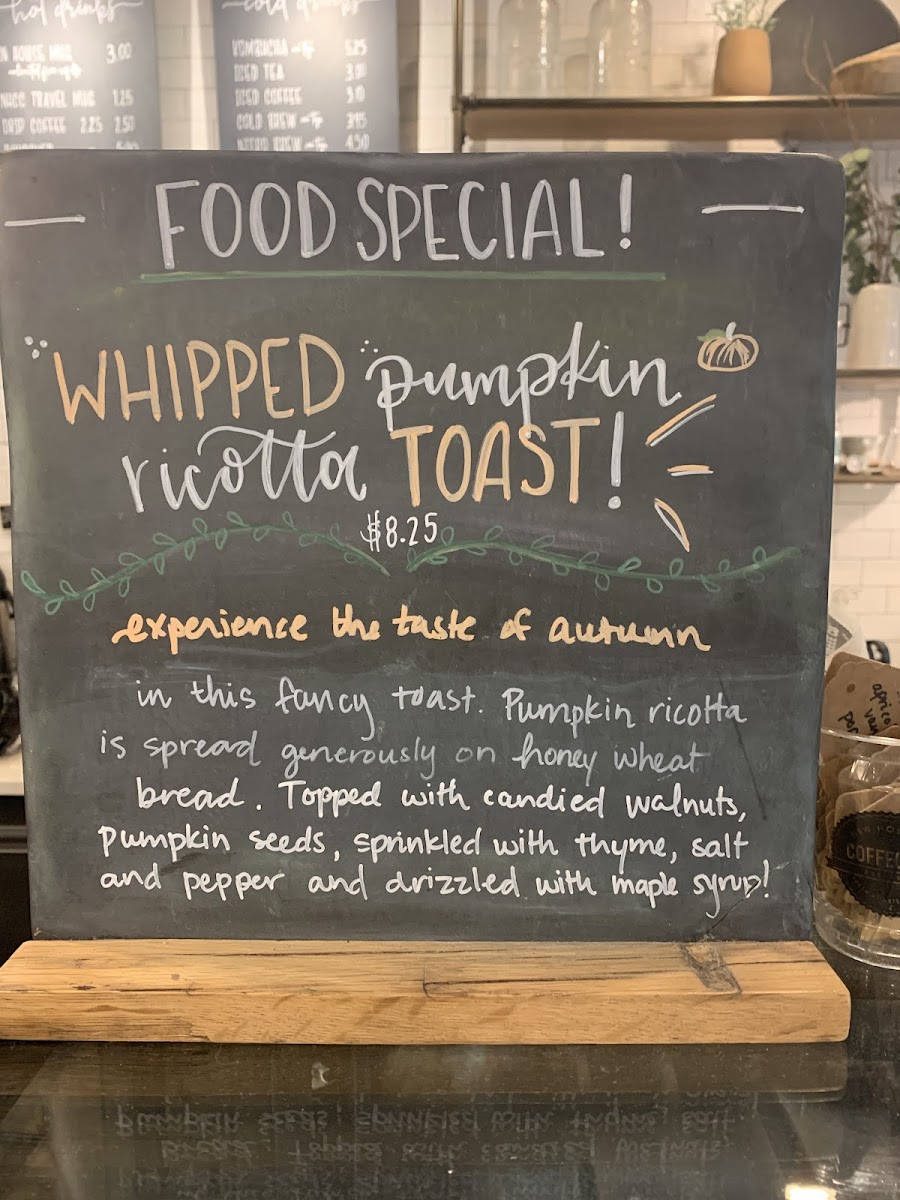 hot drinks
3.00
TRAVEL MUG 1.25
DRIP COFFEE 2.25 2.50
cold drinks
KOMBUCHA on Tap 5.25
ICED TEA
ICED COFFEE
COLD BREW on Tap
NITRO BREW on Tap 4.50
FOOD SPECIAL!
WHIPPED pumpkin
ricotta TOAST!
$8.25
experience the taste of autumn
in this fancy toast. Pumpkin ricotta
is spread generously on honey wheat
bread. Topped with candied walnuts,
pumpkin seeds, sprinkled with thyme, salt
and pepper and drizzled with maple syrup!
COFFEE